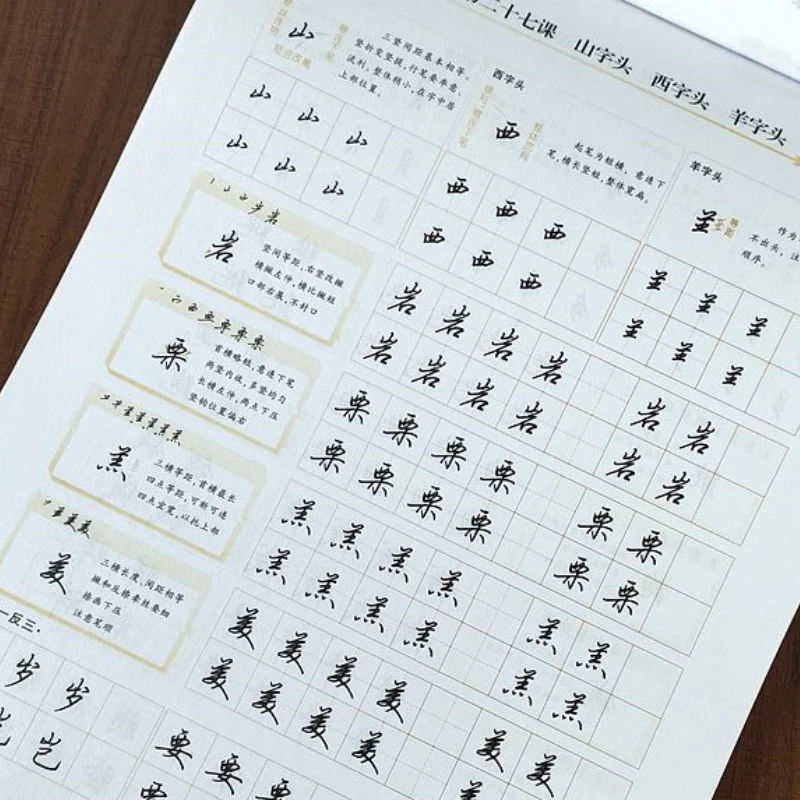 二十七课 山字头 西字头 羊字头
山
三竖间距基本相等。
竖折变竖提,行笔要率意、
流利。整体稍小,在字中居
上部位置。
西字头
西
起笔为短横,意连下
笔,横长竖短,整体宽扁。
羊字头
作为
不出头,注
顺序。
山 山 山
山 山 山
西 西 西
西 西 西
岩
竖间等距,右竖改撇
横撇左伸,横比撇短
口部右展,不封口
岩 岩 岩 岩 岩 岩
岩 岩 岩 岩 岩 岩
栗
首横略短,意连下笔
两竖内收,多竖均匀
长横左伸,两点下压
竖钩位置偏右
栗 栗 栗 栗 栗 栗
栗 栗 栗 栗 栗 栗
羔
三横等距,首横最长
四点等距,可断可连
四点宜宽,以托上部
羔 羔 羔 羔 羔 羔
羔 羔 羔 羔 羔 羔
美
三横长度、间距相等
撇和反捺牵丝要细
捺画下压
注意笔顺
美 美 美 美 美 美
美 美 美 美 美
一反三·
岁 岁
岂
要 要 要